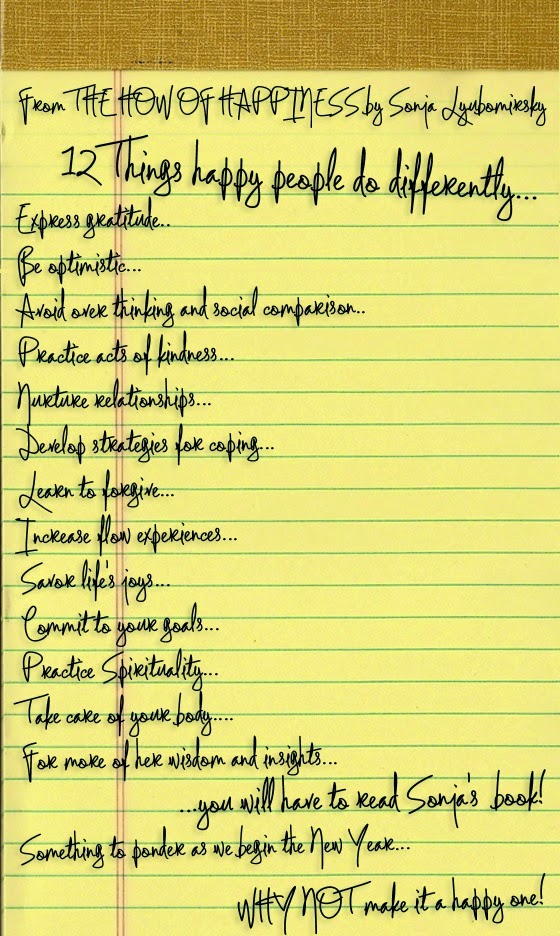 From THE HOW OF HAPPINESS by Sonja Lyubomirsky
12 Things happy people do differently...
Express gratitude..
Be optimistic...
Avoid over thinking and social comparison..
Practice acts of kindness...
Nurture relationships...
Develop strategies for coping...
Learn to forgive...
Increase flow experiences...
Savor life's joys...
Commit to your goals...
Practice Spirituality...
Take care of your body....
For more of her wisdom and insights...
...you will have to read Sonja's book!
Something to ponder as we begin the New Year...
WHY NOT make it a happy one!